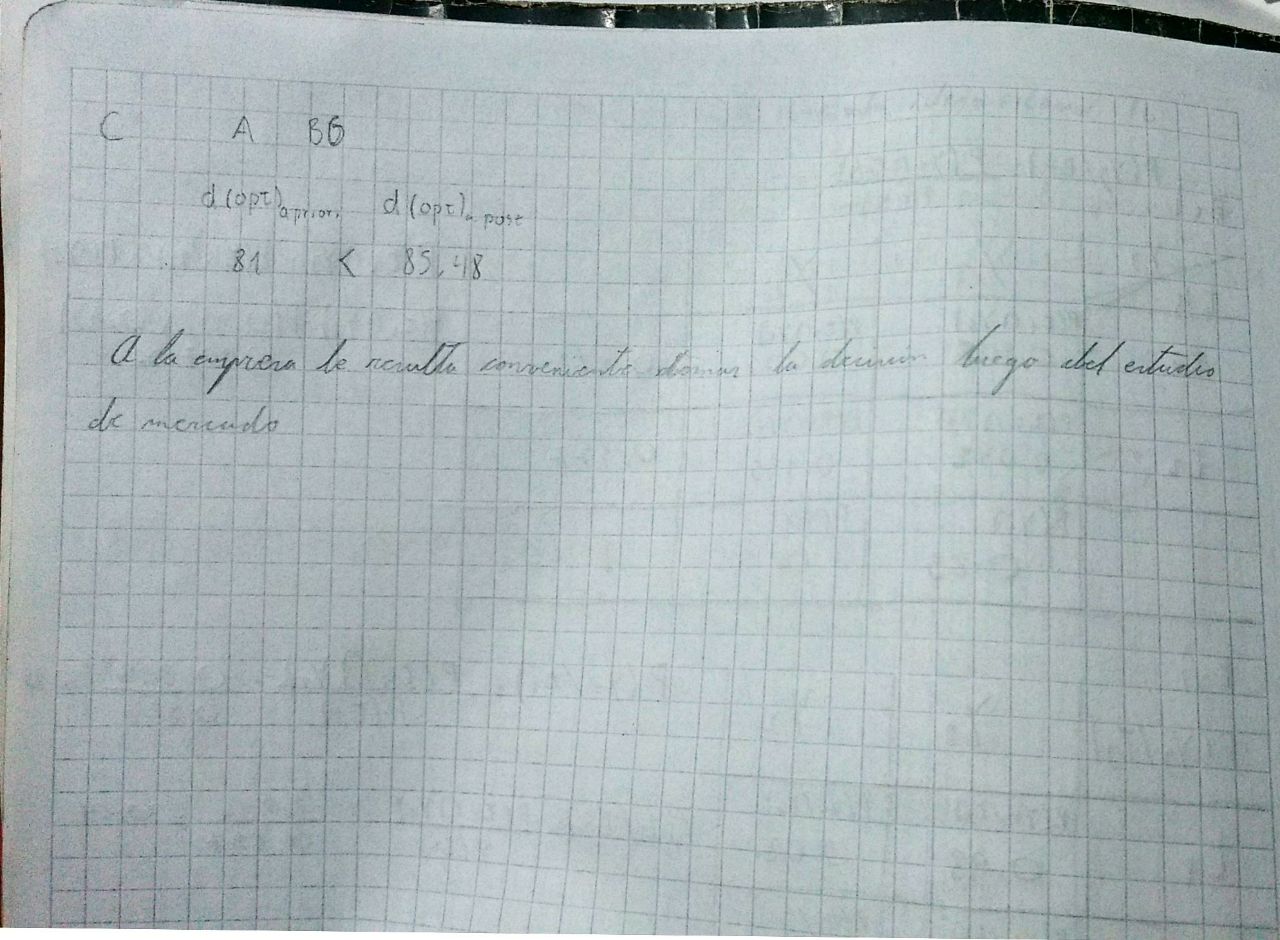 C A B6
d(opt)a priori d(opt)a post
81 < 85,48
A la empresa le resulta conveniente tomar la decisión luego del estudio
de mercado